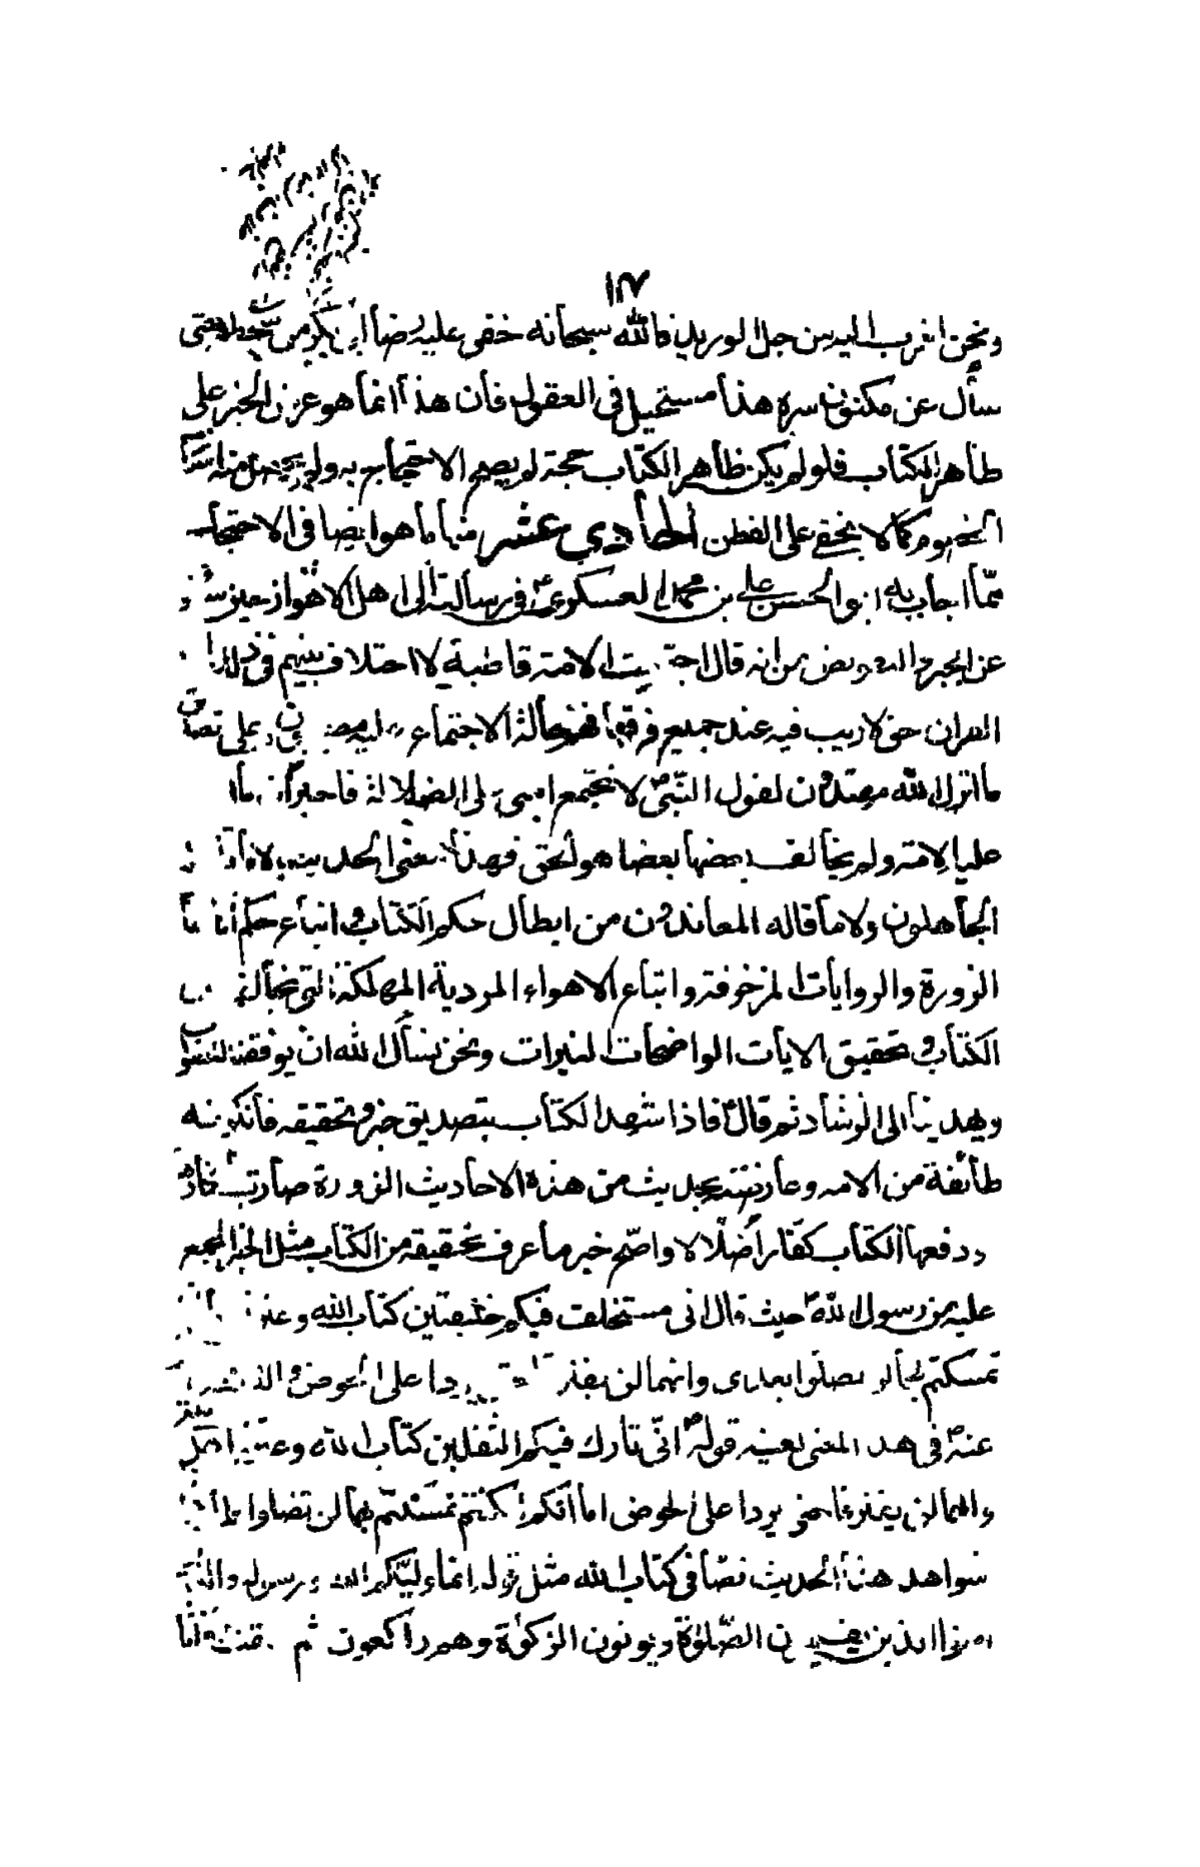 ١٨٧
ونحن اقرب اليه من حبل الوريد فالله سبحانه خفى عليه رضا ابى بكر من سخطه حتى
سأل عن مكنون سره هذا مستحيل فى العقول فأن هذا انما هو عرض الخبر على
ظاهر الكتاب فلو لم يكن ظاهر الكتاب حجة لم يصح الاحتجاج به ولم
الخصوم كما لا يخفى على الفطن الحادي عشر منها ما هو ايضا فى الاحتجاج
ممّا اجاب به ابو الحسن علي بن محمد العسكري ع فى رسالته الى اهل الاهواز حين
عن الجبر والتفويض من انه قال اجتمعت الامة قاطبة لا اختلاف بينهم فى ذلك
القران حق لا ريب فيه عند جميع فرقها فهم حالة الاجتماع عليه وعلى تصديق
ما انزل الله مهتدون لقول النّبىّ ص لا تجتمع امتى على الضلالة فاخبر ان ما
عليه الامة ولم يخالف بعضها بعضا هو الحق فهذا معنى الحديث لا ما
الجاهلون ولا ما قاله المعاندون من ابطال حكم الكتاب و اتباع حكم
الزورة والروايات المزخرفة واتباع الاهواء المردية المهلكة التى تخالف
الكتاب و تحقيق الايات الواضحات النيرات ونحن نسأل الله ان يوفقنا للصواب
ويهدينا الى الرشاد ثم قال ع فاذا شهد الكتاب بتصديق خبر و تحقيقه فأنكرته
طائفة من الامه وعارضته بحديث من هذه الاحاديث الزورة صارت
ودفعها الكتاب كفّارا ضلّالا واصّح خبر ما عرف تحقيقه من الكتاب مثل الخبر المجمع
عليه من رسول الله ص حيث قال انى مستخلف فيكم خليفتين كتاب الله وعترتى
تمسكتم بهما لن تضلّوا بعدى وانهما لن يفترقا يردا على الحوض و
عنه ص فى هذا المعنى بعينه قوله ص انّى تارك فيكم الثقلين كتاب الله وعترتى اهل بيتى
وانهما لن يفترقا حتى يردا على الحوض اما انكم ان تمسكتم بهما لن تضلوا
شواهد هذا الحديث نصّا فى كتاب الله مثل قوله انما وليّكم الله ورسوله والذين
امنوا الذين يقيمون الصّلوة ويؤتون الزكوة وهم راكعون ثم